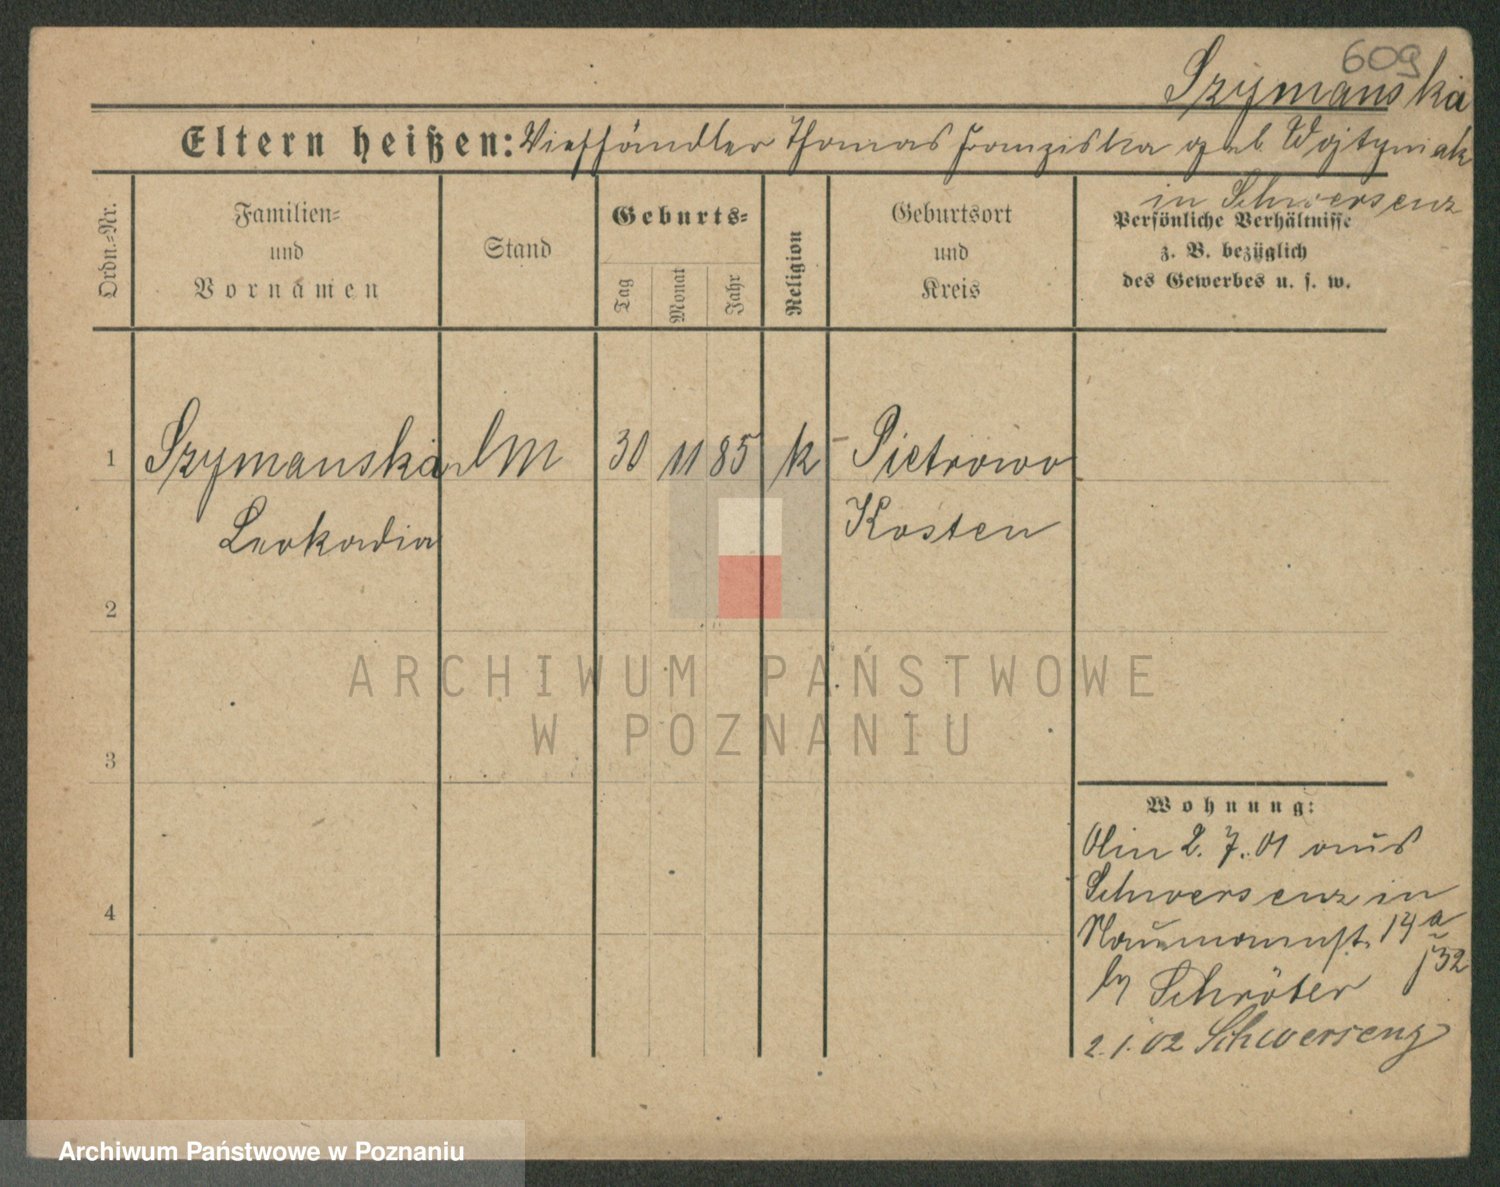 609
Szymanska
Eltern heißen: Viehhändler Thomas Franziska geb Wojtyniak
in Schwersenz
Ordn.-Nr.
Familien-
und
Vornamen
Stand
Geburts-
Tag
Monat
Jahr
Religion
Geburtsort
und
Kreis
Persönliche Verhältnisse
z. B. bezüglich
des Gewerbes u. s. w.
1 Szymanska 30 11 85 k Pietrowo
Leokadia Kosten
2
ARCHIWUM PAŃSTWOWE
W POZNANIU
3
Wohnung:
2. 7. 01 aus
Schwersenz in
4
Naumannst. 14a
bei Schröter
2.1.02 Schwersenz
Archiwum Państwowe w Poznaniu